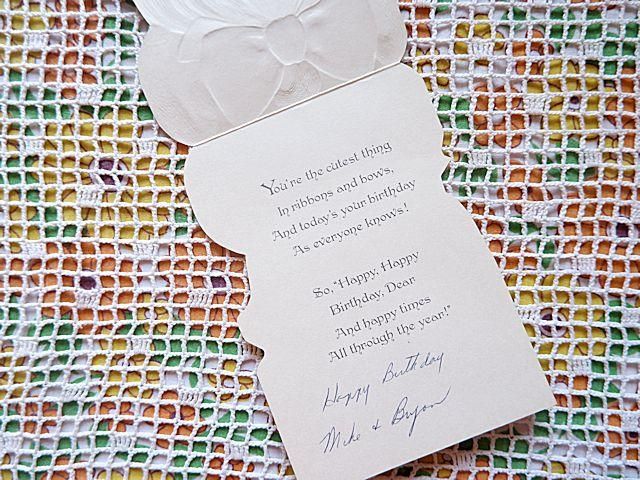 You're the cutest thing
In ribbons and bows,
And today's your birthday
As everyone knows!
So, "Happy, Happy
Birthday, Dear
And happy times
All through the year!"
Happy Birthday
Mike + Bryan